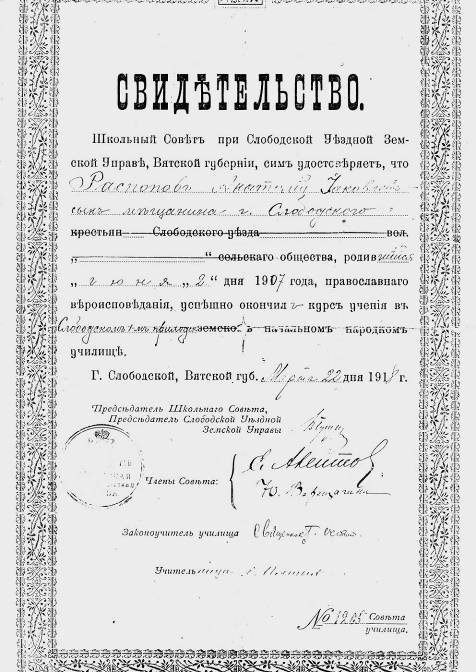 СВИДѢТЕЛЬСТВО.
Школьный Совѣтъ при Слободской Уѣздной Зем-
ской Управѣ, Вятской губерніи, симъ удостовѣряетъ, что
Распоповъ Анатолій Яковлевъ
сынъ мѣщанина г. Слободского
крестьян Слободского уѣзда вол.
„ “ сельскаго общества, родившійся
„ іюня „2“ дня 1907 года, православнаго
вѣроисповѣданія, успѣшно окончил курсъ ученія въ
Слободскомъ 1-мъ приходс земско. в начальном народном
училищѣ.
Г. Слободской, Вятской губ. Марта 22 дня 1918 г.
Предсѣдатель Школьнаго Совѣта,
Предсѣдатель Слободской Уѣздной
Земской Управы
Члены Совѣта:
Законоучитель училища Священ
Учительница
№ 1965 Совѣта
училища.